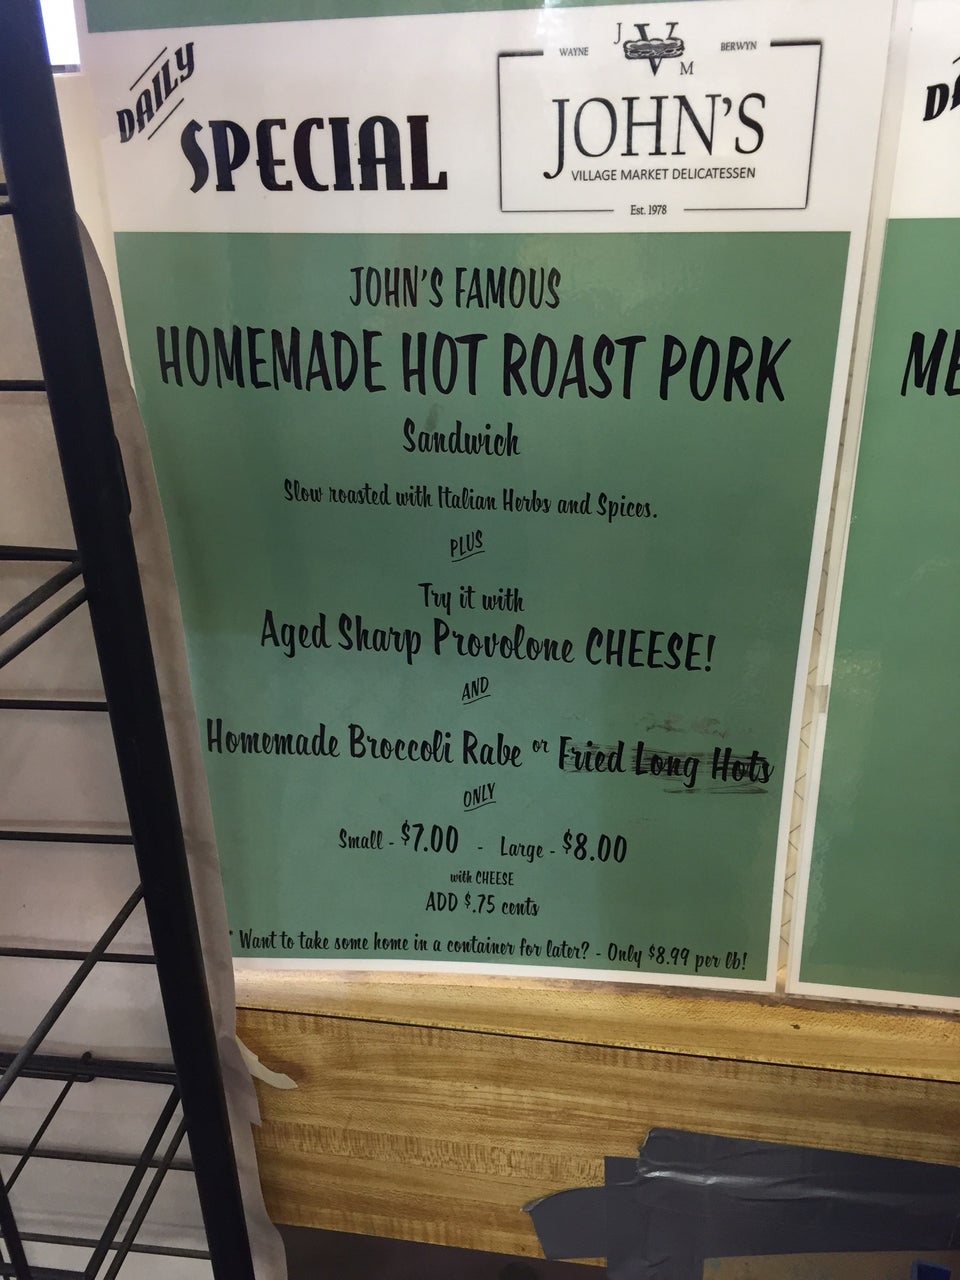 DAILY
SPECIAL
WAYNE
J V M
BERWYN
JOHN'S
VILLAGE MARKET DELICATESSEN
Est. 1978
JOHN'S FAMOUS
HOMEMADE HOT ROAST PORK
Sandwich
Slow roasted with Italian Herbs and Spices.
PLUS
Try it with
Aged Sharp Provolone CHEESE!
AND
Homemade Broccoli Rabe or Fried Long Hots
ONLY
Small - $7.00 - Large - $8.00
with CHEESE
ADD $.75 cents
* Want to take some home in a container for later? - Only $8.99 per lb!